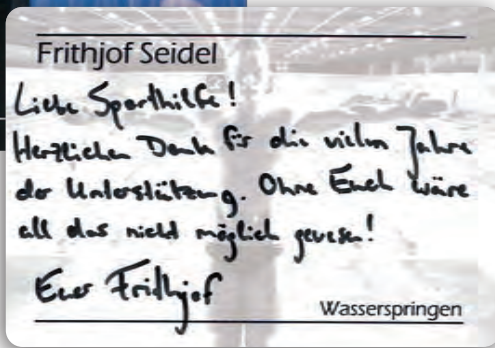 Frithjof Seidel
Liebe Sporthilfe!
Herzlichen Dank für die vielen Jahre
der Unterstützung. Ohne Euch wäre
all das nicht möglich gewesen!
Euer Fridhjof
Wasserspringen